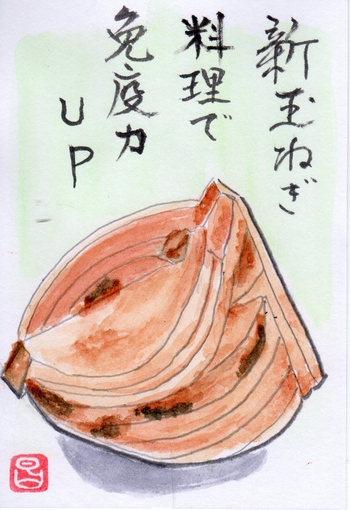 新玉ねぎ
料理で
免疫力
UP